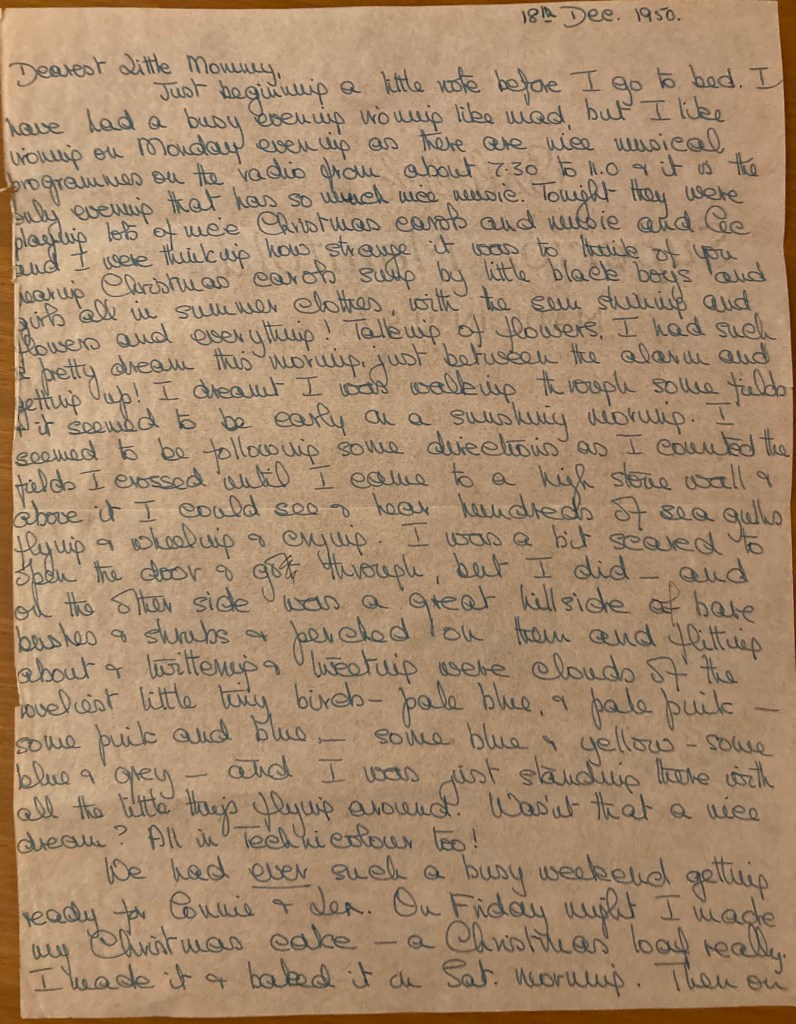 18th Dec. 1950.
Dearest Little Mommy,
Just beginning a little note before I go to bed. I
have had a busy evening ironing like mad, but I like
ironing on Monday evening as there are nice musical
programmes on the radio from about 7.30 to 11.0 & it is the
only evening that has so much nice music. Tonight they were
playing lots of nice Christmas carols and music and Cec
and I were thinking how strange it was to think of you
hearing Christmas carols sung by little black boys and
girls all in summer clothes, with the sun shining and
flowers and everything! Talking of flowers, I had such
a pretty dream this morning, just between the alarm and
getting up! I dreamt I was walking through some fields
& it seemed to be early on a sunshiny morning. I
seemed to be following some directions as I counted the
fields I crossed until I came to a high stone wall &
above it I could see & hear hundreds of sea gulls
flying & wheeling & crying. I was a bit scared to
open the door & go through, but I did – and
on the other side was a great hillside of bare
bushes & shrubs & perched on them and flitting
about & twittering & tweeting were clouds of the
loveliest little tiny birds – pale blue, & pale pink –
some pink and blue – some blue & yellow – some
blue & grey – and I was just standing there with
all the little things flying around. Wasn't that a nice
dream? All in Technicolour too!
We had ever such a busy weekend getting
ready for Connie & Len. On Friday night I made
my Christmas cake – a Christmas loaf really.
I made it & baked it on Sat. morning. Then on